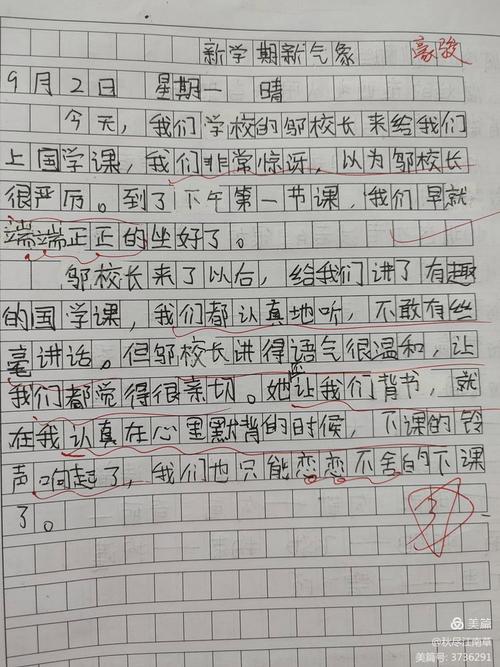 新学期新气象 高骏
9月2日 星期一 晴
今天，我们学校的邬校长来给我们
上国学课，我们非常惊讶，以为邬校长
很严厉。到了下午第一节课，我们早就
端端正正的坐好了。
邬校长来了以后，给我们讲了有趣
的国学课，我们都认真地听，不敢有丝
毫讲话。但邬校长讲得语气很温和，让
我们都觉得很亲切。她还让我们背书，就
在我认真在心里默背的时候，下课的铃
声响起了，我们也只能恋恋不舍的下课
了。
美篇
@秋尽江南草
美篇号: 3736291